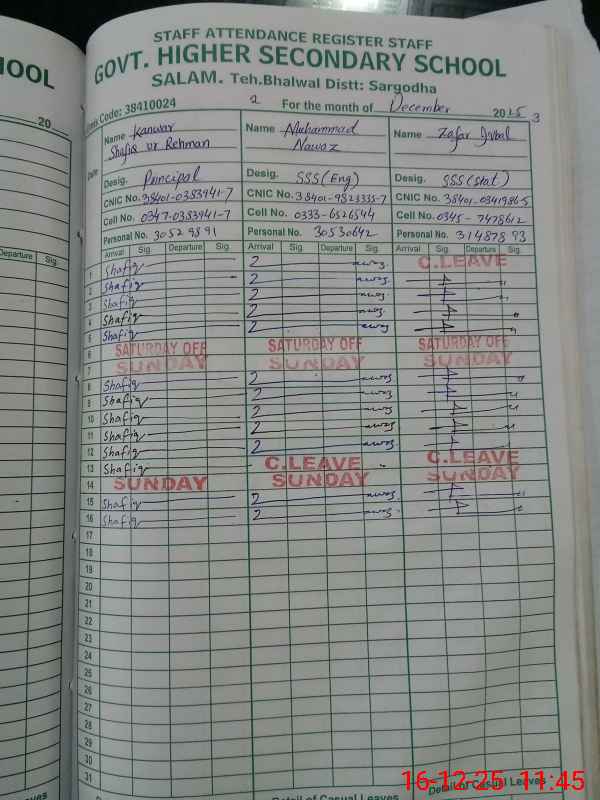 STAFF ATTENDANCE REGISTER STAFF
HOOL GOVT. HIGHER SECONDARY SCHOOL
SALAM. Teh.Bhalwal Distt: Sargodha
Code: 38410024 2 For the month of December 2025 3
20
Date Name Kanwar Shafiq ur Rehman Name Muhammad Nawaz Name Zafar Iqbal
Desig. Principal Desig. SSS(Eng) Desig. SSS(Stat)
CNIC No. 38401-0383941-7 CNIC No. 38401-9823335-7 CNIC No. 38401-0341986-5
Cell No. 0347-0383941-7 Cell No. 0333-6526544 Cell No. 0345-7478612
Personal No. 30529891 Personal No. 30530642 Personal No. 31487893
Departure Sig. Arrival Sig. Departure Sig. Arrival Sig. Departure Sig. Arrival Sig. Departure Sig.
1 Shafiq C.LEAVE
2 Shafiq
3 Shafiq
4 Shafiq
5 Shafiq
6 SATURDAY OFF SATURDAY OFF SATURDAY OFF
7 SUNDAY SUNDAY SUNDAY
8 Shafiq
9 Shafiq
10 Shafiq
11 Shafiq
12 Shafiq
13 Shafiq C.LEAVE C.LEAVE
14 SUNDAY SUNDAY SUNDAY
15 Shafiq
16 Shafiq
17
18
19
20
21
22
23
24
25
26
27
28
29
30
31
Leaves Detail of Casual Leaves Detail of Casual Leaves
16-12-25 11:45